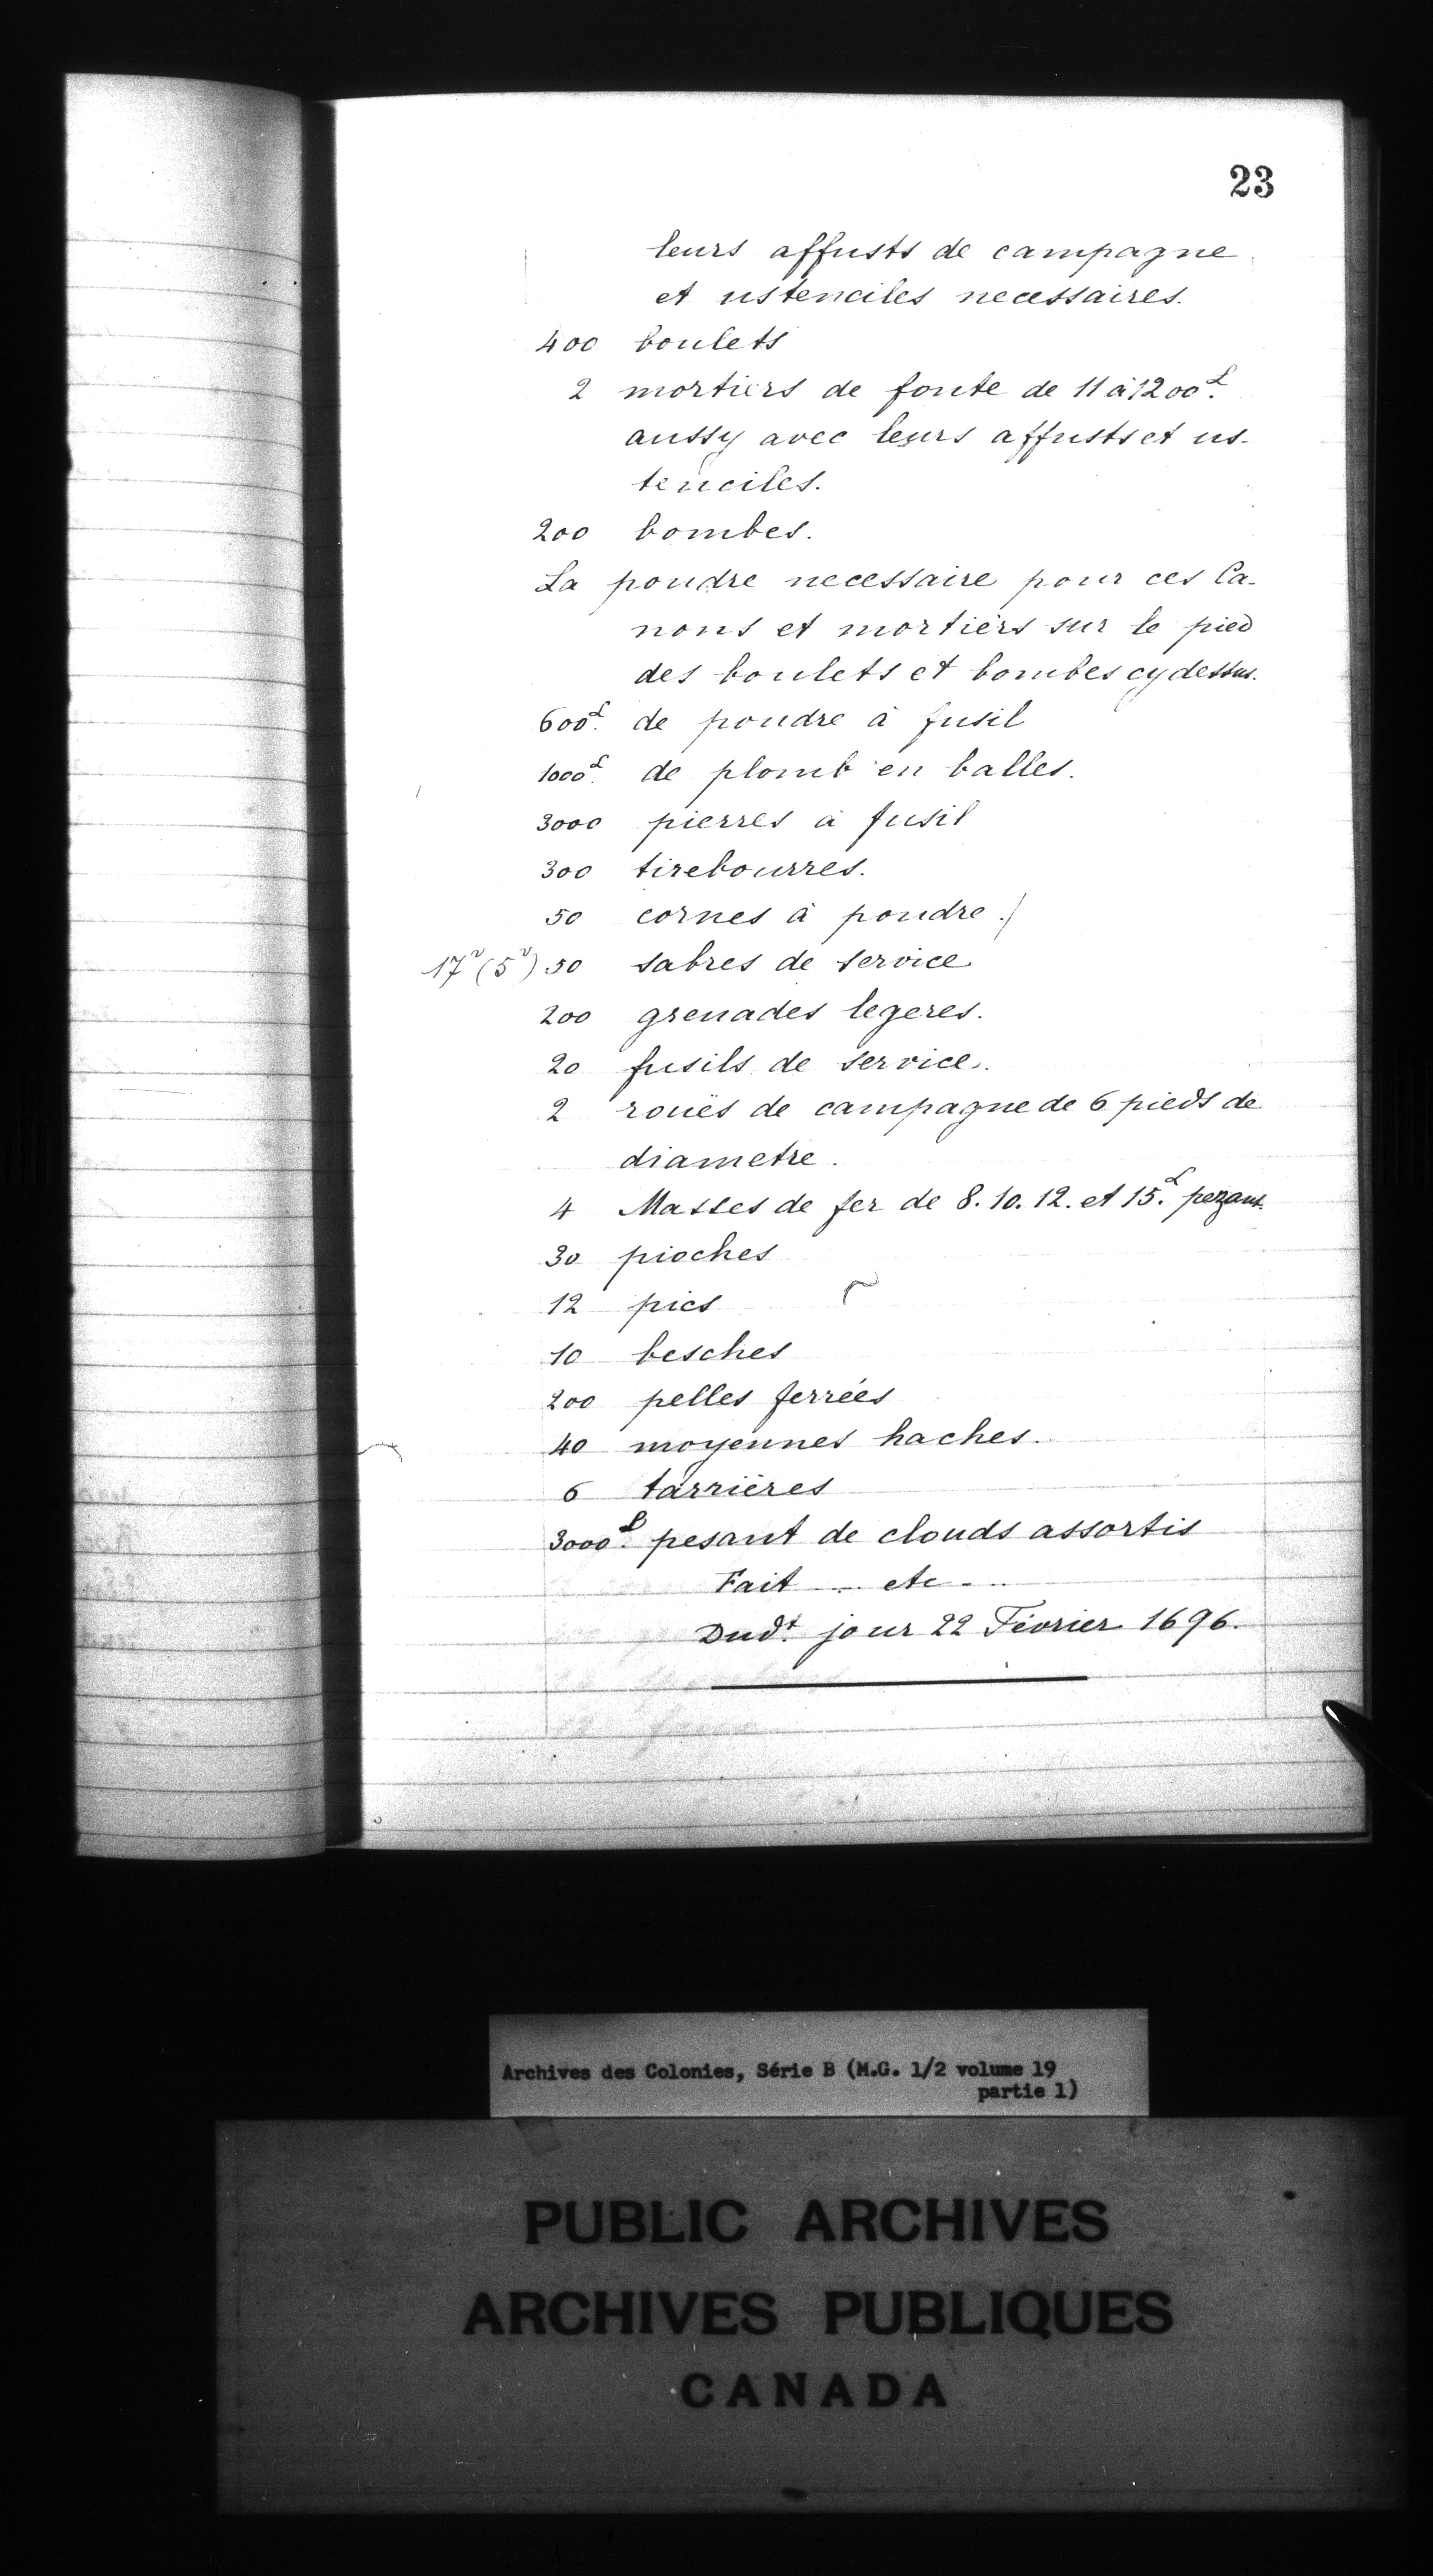 23
leurs affusts de campagne
et ustenciles necessaires.
400 boulets
2 mortiers de fonte de 11 à 1200£.
aussy avec leurs affusts et us-
tenciles.
200 bombes.
La poudre necessaire pour ces Ca-
nons et mortiers sur le pied
des boulets et bombes cy dessus.
600£. de poudre à fusil
1000£. de plomb en balles.
3000 pierres à fusil
300 tirebourres.
50 cornes à poudre./
17v (5v) 50 sabres de service
200 grenades legeres.
20 fusils de service.
2 rouës de campagne de 6 pieds de
diametre.
4 Masses de fer de 8. 10. 12. et 15£. pezant.
30 pioches
12 pics
10 besches
200 pelles ferrées
40 moyennes haches.
6 tarrières
3000£. pesant de clouds assortis
Fait ... etc ...
Dudt. jour 22 Février 1696.
Archives des Colonies, Série B (M.G. 1/2 volume 19
partie 1)
PUBLIC ARCHIVES
ARCHIVES PUBLIQUES
CANADA